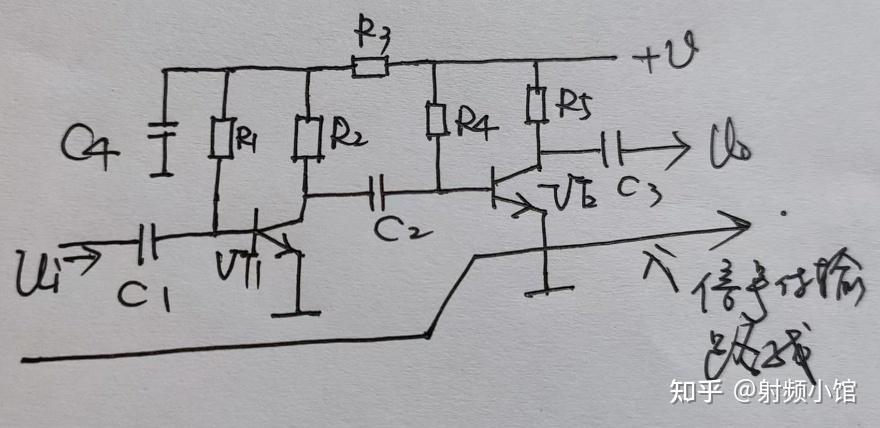 R3
+U
C4
R1
R2
R4
R5
Uo
C3
VT2
C2
Ui
C1
VT1
信号传输
路线
知乎 @射频小馆